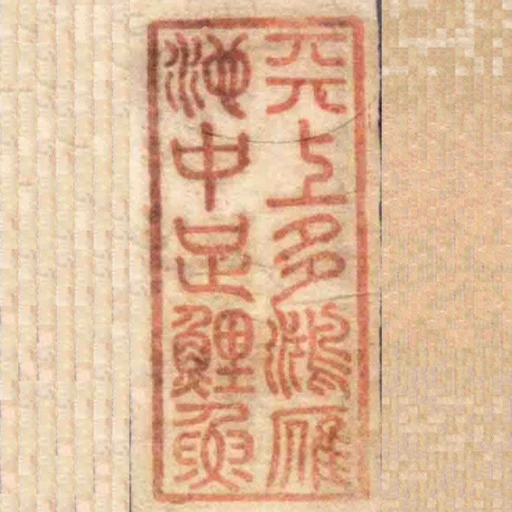 天上多鴻雁
池中足鯉魚